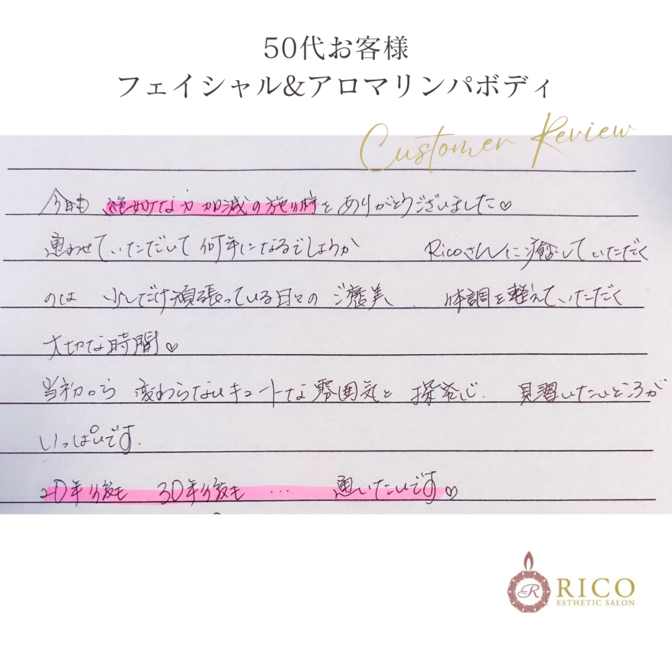 50代お客様
フェイシャル&アロマリンパボディ
Customer Review
今日も 絶妙な力加減の施術をありがとうございました♡
通わせていただいて何年になるでしょうか Ricoさんに癒していただく
のは 少しだけ頑張っている日々の ご褒美、 体調を整えていただく
大切な時間♡
当初から 変わらないキュートな雰囲気と 探究心、 見習いたいところが
いっぱいです.
20年後も 30年後も … 通いたいです♡
R
RICO
ESTHETIC SALON